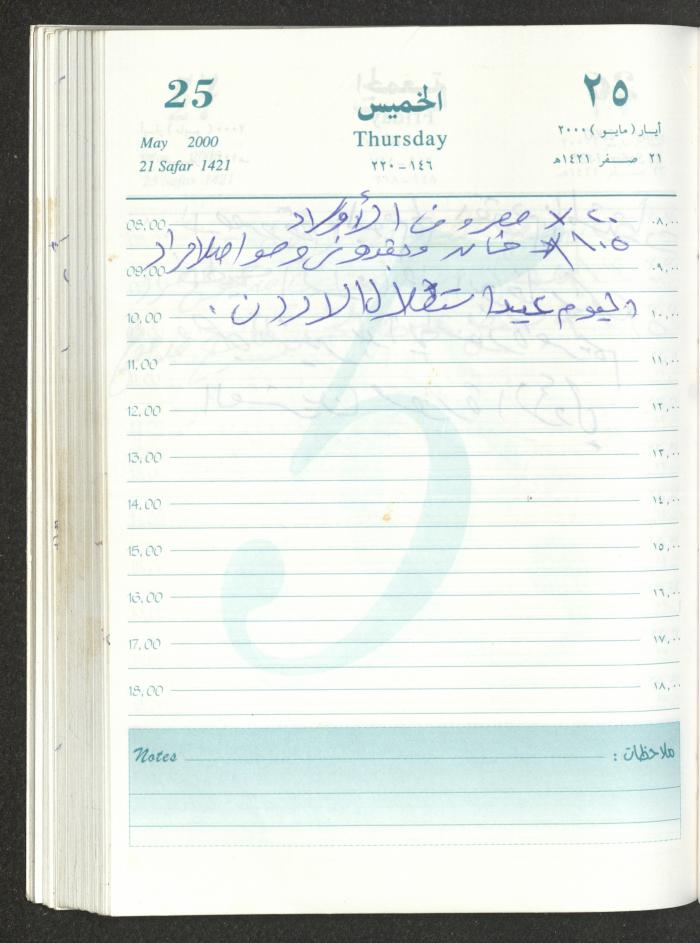 25
الخميس
٢٥
May 2000
Thursday
أيار (مايو) ٢٠٠٠
21 Safar 1421
٢٢٠-١٤٦
٢١ صفر ١٤٢١هـ
٢٠ × مصروف الأولاد
08,00 ٨,٠٠
١,٠٥ × خضار وبقدونس و
09,00 ٩,٠٠
اليوم عيد استقلال الاردن .
10,00 ١٠,٠٠
11,00 ١١,٠٠
12,00 ١٢,٠٠
13,00 ١٣,٠٠
14,00 ١٤,٠٠
15,00 ١٥,٠٠
16,00 ١٦,٠٠
17,00 ١٧,٠٠
18,00 ١٨,٠٠
Notes ملاحظات :